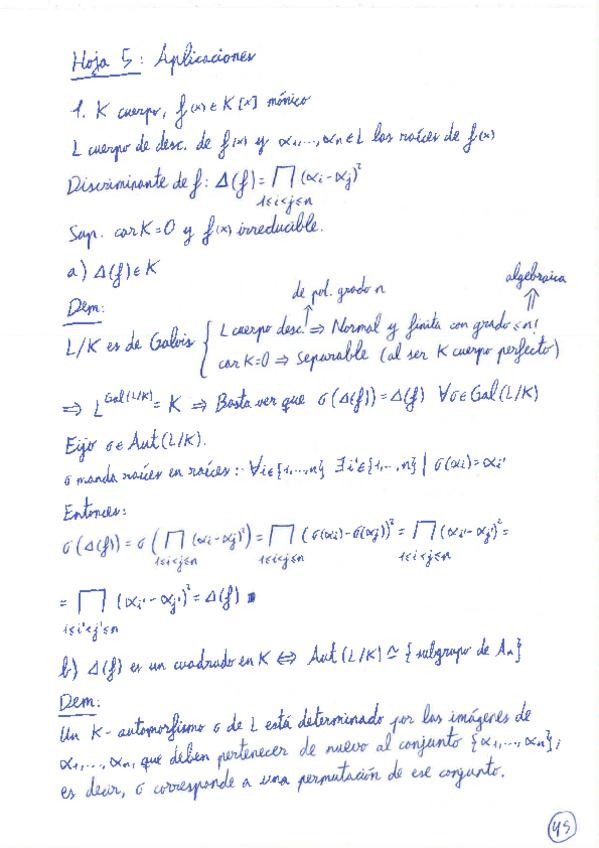 Hoja 5: Aplicaciones
1. K cuerpo, f(x) ∈ K[x] mónico
L cuerpo de desc. de f(x) y α₁,...,αₙ ∈ L las raíces de f(x)
Discriminante de f: Δ(f) = ∏ (αᵢ-αⱼ)²
1≤i<j≤n
Sup. car K=0 y f(x) irreducible.
a) Δ(f) ∈ K
Dem:
de pol. grado n
algebraica
L/K es de Galois { L cuerpo desc. ⇒ Normal y finita con grado ≤ n!
car K=0 ⇒ Separable (al ser K cuerpo perfecto)
⇒ L^Gal(L/K) = K ⇒ Basta ver que σ(Δ(f)) = Δ(f) ∀σ∈Gal(L/K)
Fijo σ ∈ Aut(L/K).
σ manda raíces en raíces: ∀i∈{1,...,n} ∃i'∈{1,...,n} | σ(αᵢ) = αᵢ'
Entonces:
σ(Δ(f)) = σ(∏ (αᵢ-αⱼ)²) = ∏ (σ(αᵢ)-σ(αⱼ))² = ∏ (αᵢ'-αⱼ')² =
1≤i<j≤n 1≤i<j≤n 1≤i<j≤n
= ∏ (αᵢ'-αⱼ')² = Δ(f) ∎
1≤i'<j'≤n
b) Δ(f) es un cuadrado en K ⇔ Aut(L/K) ≃ {subgrupo de Aₙ}
Dem:
Un K-automorfismo σ de L está determinado por las imágenes de
α₁,...,αₙ, que deben pertenecer de nuevo al conjunto {α₁,...,αₙ};
es decir, σ corresponde a una permutación de ese conjunto.
45